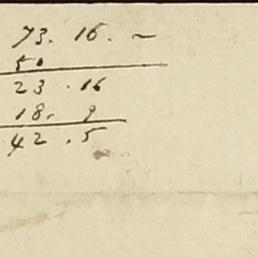 73. 16. –
50
23 . 16
18. 9
42 . 5